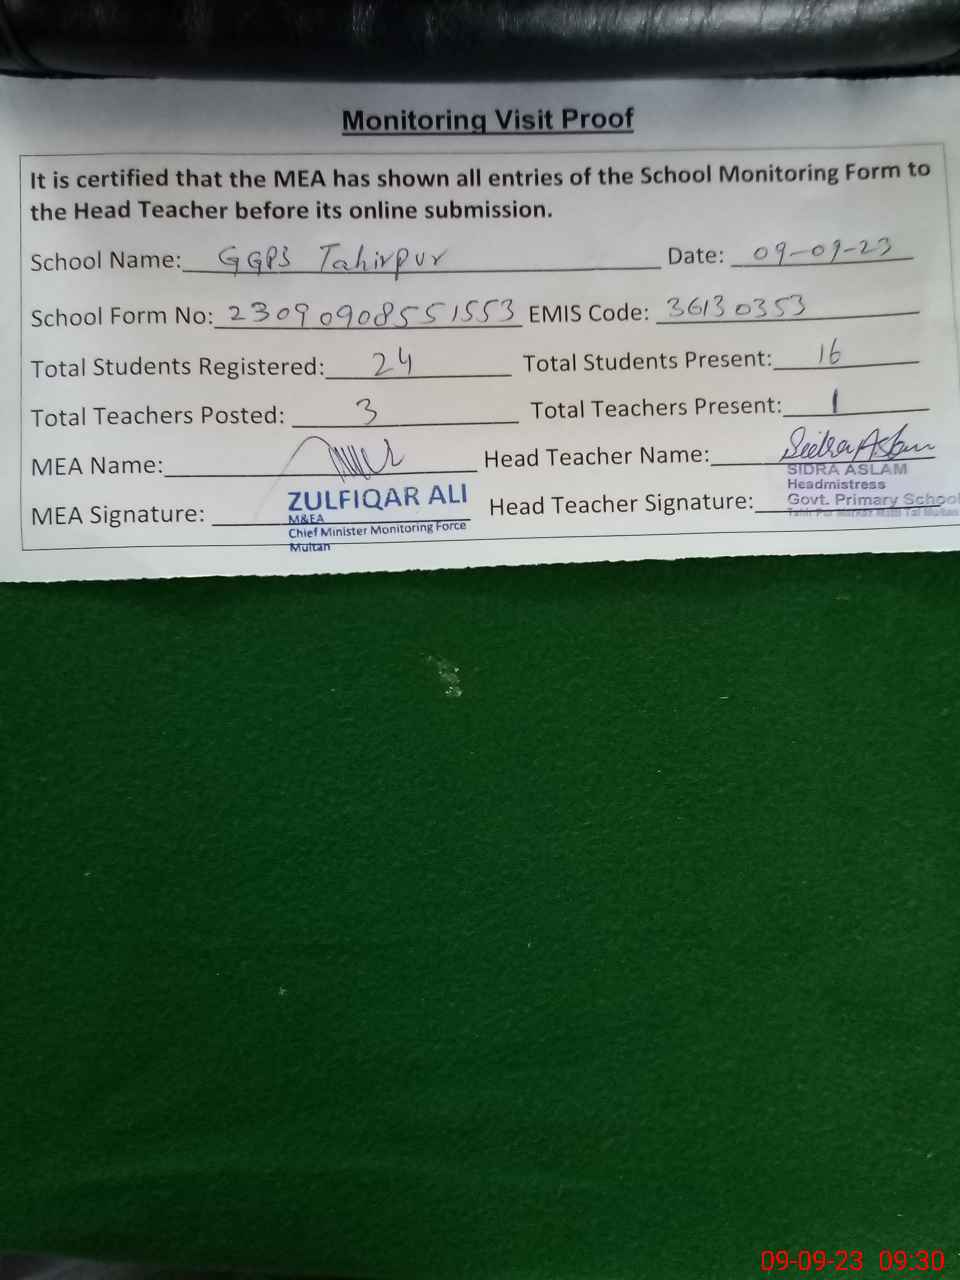 Monitoring Visit Proof
It is certified that the MEA has shown all entries of the School Monitoring Form to
the Head Teacher before its online submission.
School Name: GGPS Tahirpur Date: 09-09-23
School Form No: 23090908551553 EMIS Code: 36130353
Total Students Registered: 24 Total Students Present: 16
Total Teachers Posted: 3 Total Teachers Present: 1
MEA Name: Head Teacher Name: Sidra Aslam
SIDRA ASLAM
Headmistress
ZULFIQAR ALI
MEA Signature: Head Teacher Signature: Govt. Primary School
M&EA
Chief Minister Monitoring Force
Multan
09-09-23 09:30